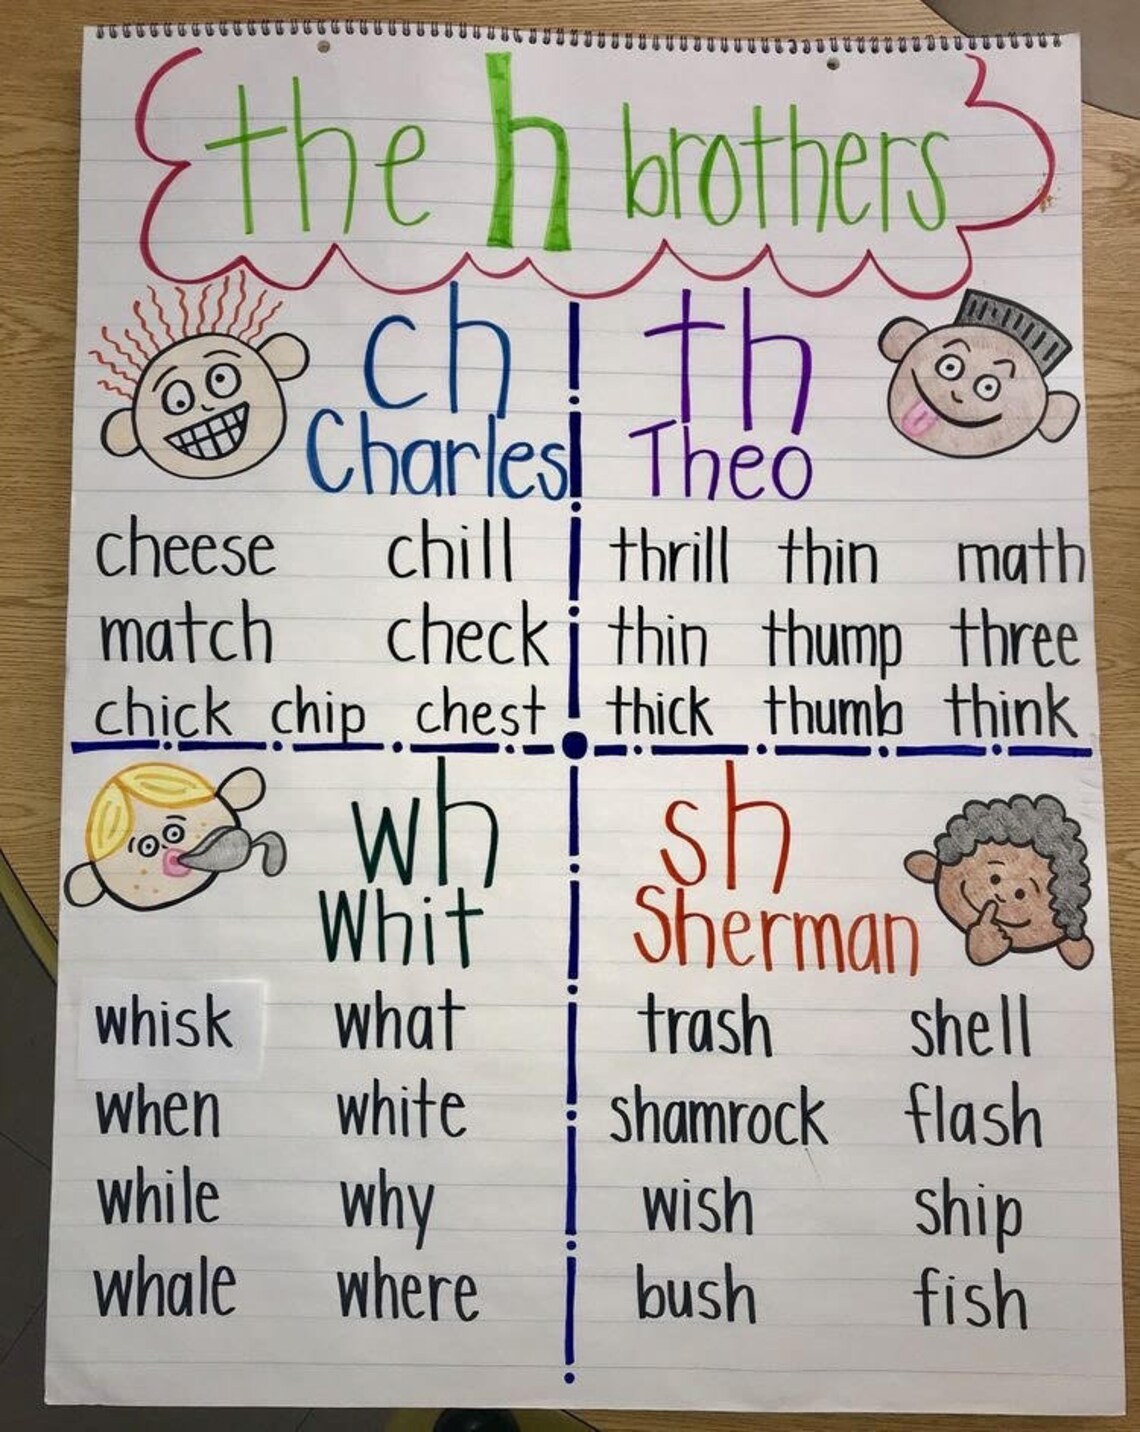 the h brothers
ch
Charles
cheese chill
match check
chick chip chest
th
Theo
thrill thin math
thin thump three
thick thumb think
wh
Whit
whisk what
when white
while why
whale where
sh
Sherman
trash shell
shamrock flash
wish ship
bush fish